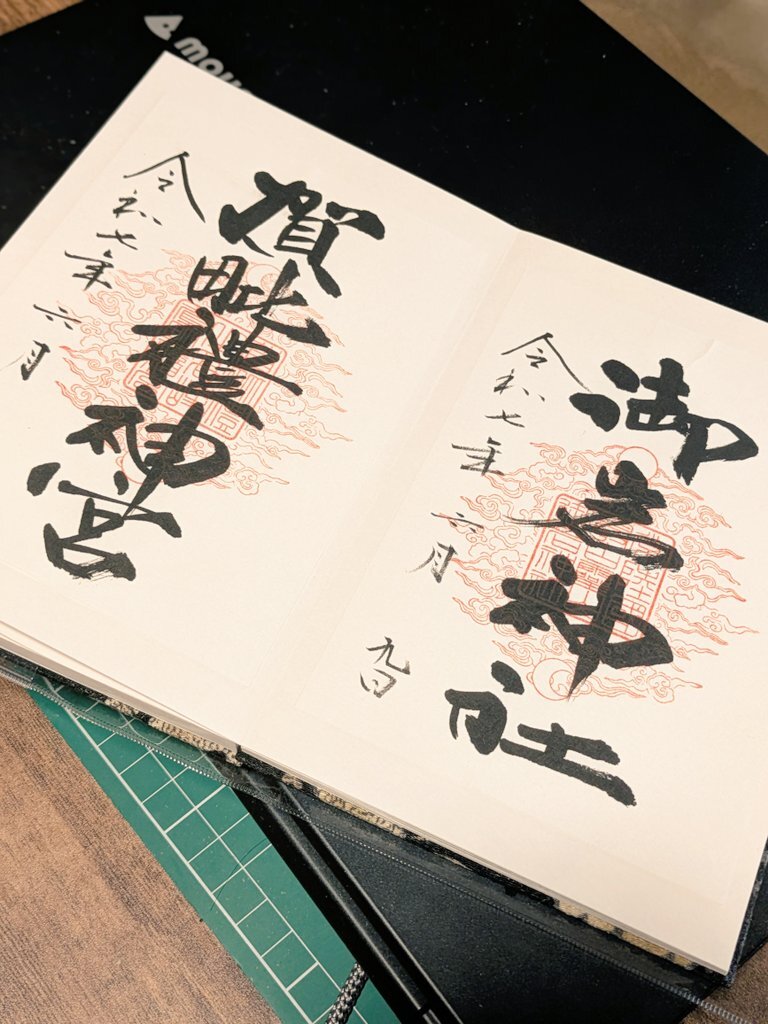 御岩神社
令和七年六月九日
賀毗禮神宮
令和七年六月